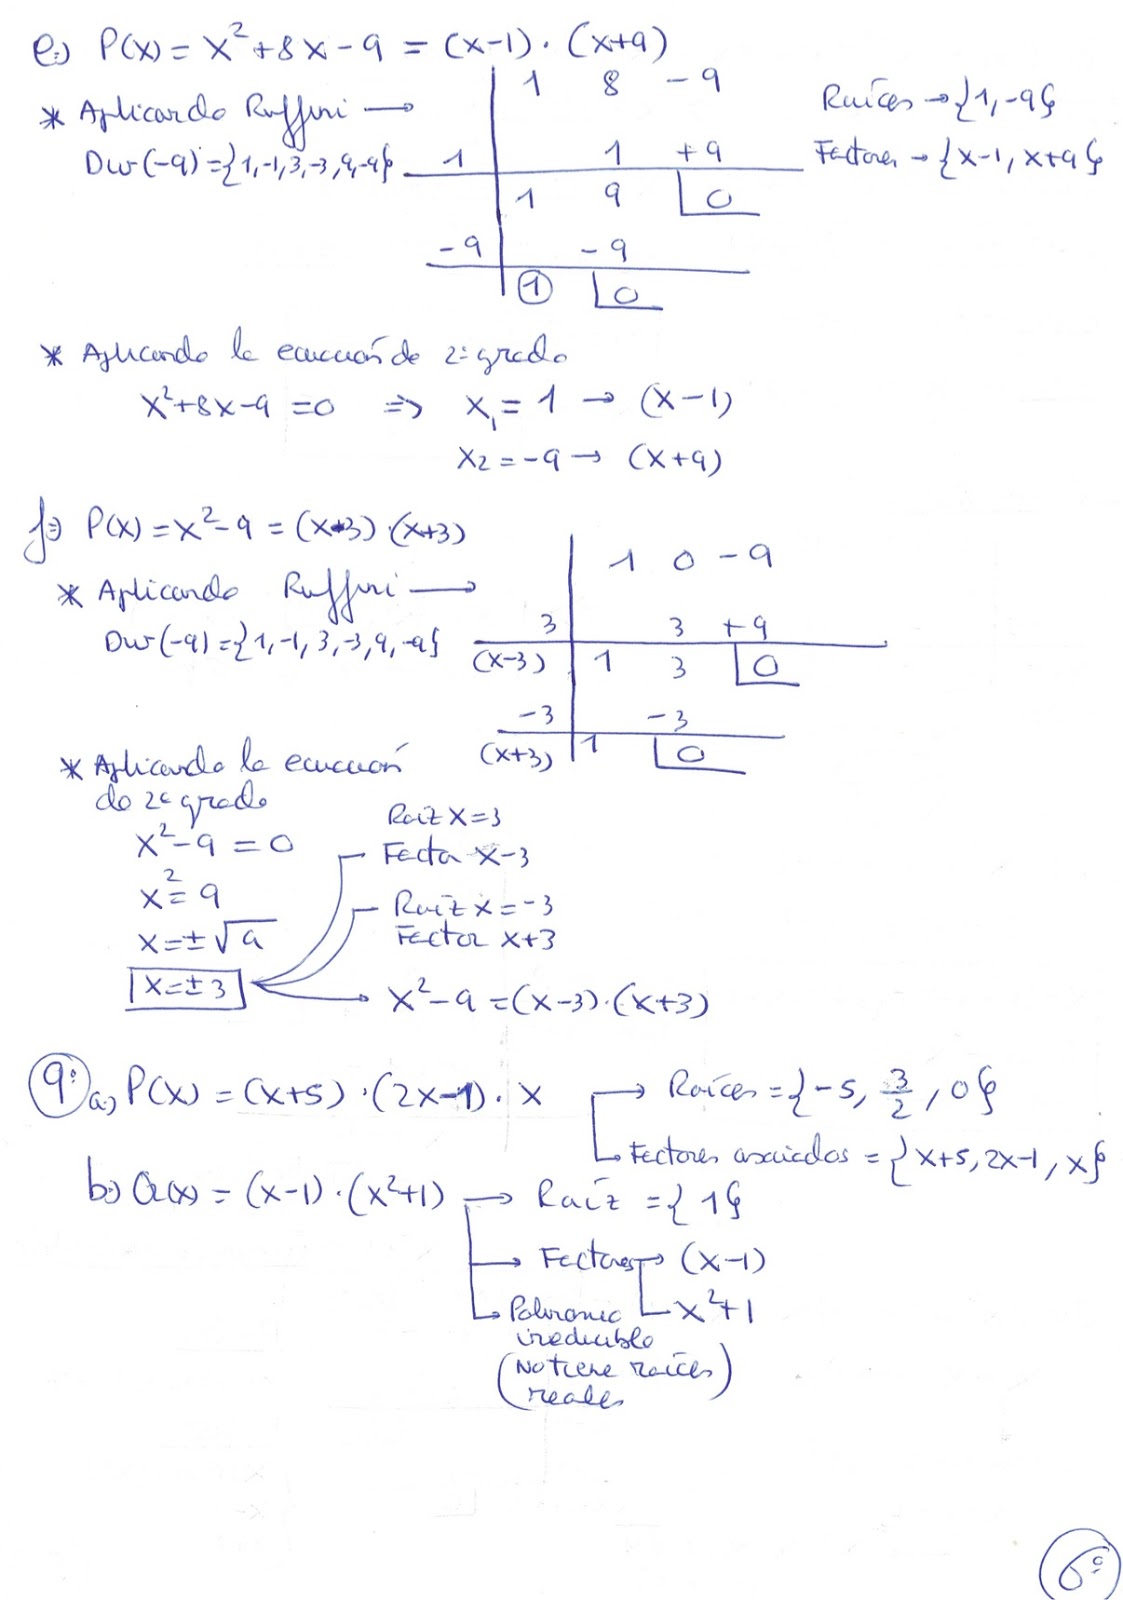 e.) P(x) = x²+8x-9 = (x-1)·(x+9)
1 8 -9
* Aplicando Ruffini →
Raíces → {1,-9}
Div(-9)={1,-1,3,-3,9,-9}
1 1 +9
Factores → {x-1, x+9}
1 9 0
-9 -9
1 0
* Aplicando la ecuación de 2º grado
x²+8x-9 =0 ⇒ x₁= 1 → (x-1)
x2 = -9 → (x+9)
f.) P(x) = x²-9 = (x-3)·(x+3)
1 0 -9
* Aplicando Ruffini →
Div(-9)={1,-1,3,-3,9,-9}
3 3 +9
(x-3) 1 3 0
-3 -3
(x+3) 1 0
* Aplicando la ecuación
de 2º grado
x²-9 = 0
Raíz x=3
Factor x-3
x²= 9
Raíz x=-3
x=±√9
Factor x+3
x=±3
x²-9 =(x-3)·(x+3)
9º a) P(x) = (x+5)·(2x-1)·x
→ Raíces = {-5, 3/2, 0}
→ Factores asociados = {x+5, 2x-1, x}
b.) Q(x) = (x-1)·(x²+1) → Raíz = {1}
→ Factores → (x-1)
x²+1
→ Polinomio
irreducible
(No tiene raíces
reales)
6º